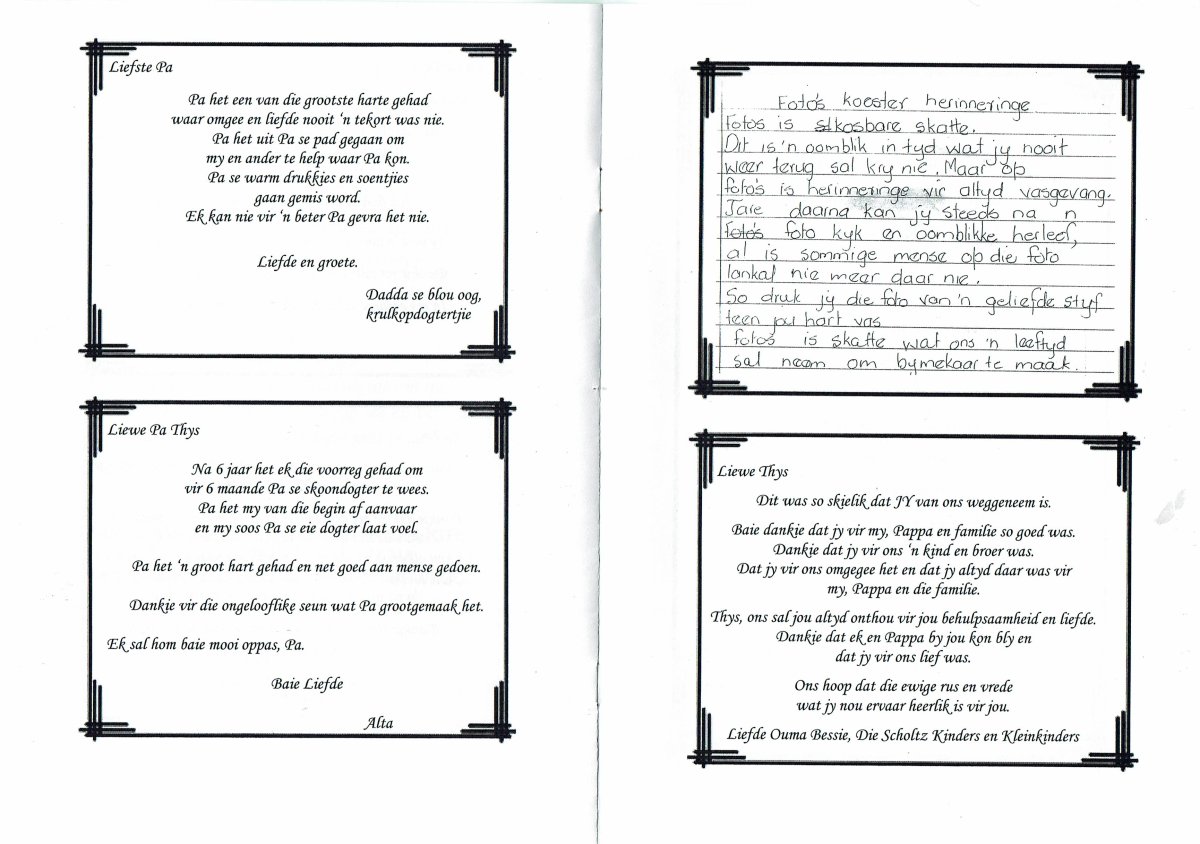 Liefste Pa
Pa het een van die grootste harte gehad
waar omgee en liefde nooit ‘n tekort was nie.
Pa het uit Pa se pad gegaan om
my en ander te help waar Pa kon.
Pa se warm drukkies en soentjies
gaan gemis word.
Ek kan nie vir ‘n beter Pa gevra het nie.
Liefde en groete.
Dadda se blou oog,
krulkopdogtertjie
Liewe Pa Thys
Na 6 jaar het ek die voorreg gehad om
vir 6 maande Pa se skoondogter te wees.
Pa het my van die begin af aanvaar
en my soos Pa se eie dogter laat voel.
Pa het ‘n groot hart gehad en net goed aan mense gedoen.
Dankie vir die ongelooflike seun wat Pa grootgemaak het.
Ek sal hom baie mooi oppas, Pa.
Baie Liefde
Alta
Foto's koester herinneringe
Foto's is kosbare skatte.
Dit is 'n oomblik in tyd wat jy nooit
weer terug sal kry nie. Maar op
foto's is herinneringe vir altyd vasgevang.
Jare daarna kan jy steeds na 'n
foto's foto kyk en oomblikke herleef,
al is sommige mense op die foto
lankal nie meer daar nie.
So druk jy die foto van 'n geliefde styf
teen jou hart vas
fotos is skatte wat ons 'n leeftyd
sal neem om bymekaar te maak.
Liewe Thys
Dit was so skielik dat JY van ons weggeneem is.
Baie dankie dat jy vir my, Pappa en familie so goed was.
Dankie dat jy vir ons ‘n kind en broer was.
Dat jy vir ons omgegee het en dat jy altyd daar was vir
my, Pappa en die familie.
Thys, ons sal jou altyd onthou vir jou behulpsaamheid en liefde.
Dankie dat ek en Pappa by jou kon bly en
dat jy vir ons lief was.
Ons hoop dat die ewige rus en vrede
wat jy nou ervaar heerlik is vir jou.
Liefde Ouma Bessie, Die Scholtz Kinders en Kleinkinders